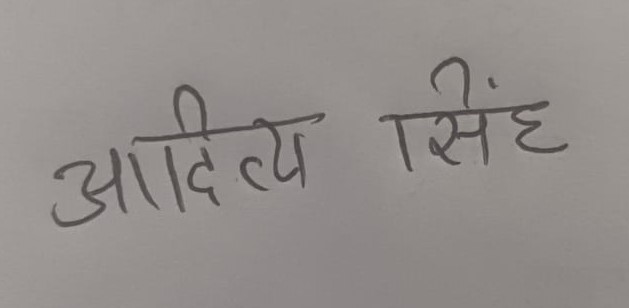 आदित्य सिंह